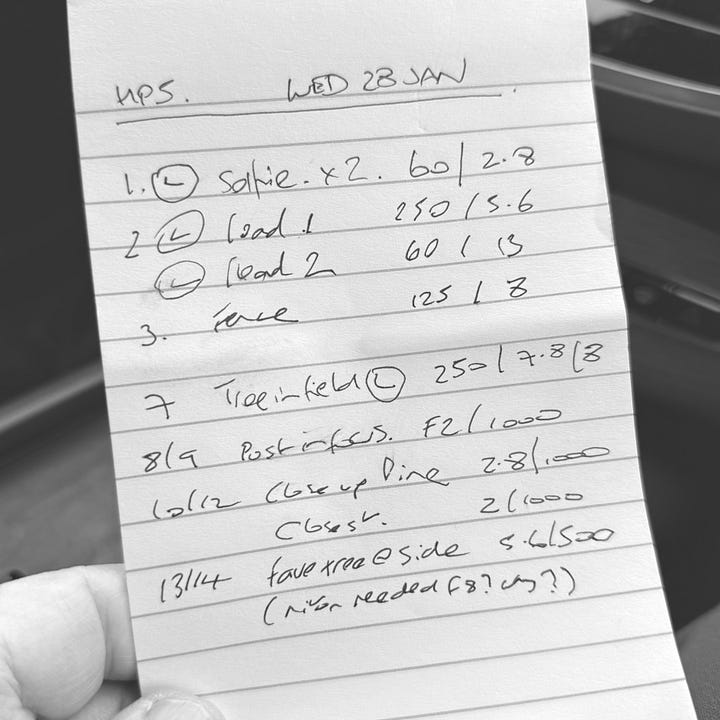 HP5. WED 28 JAN
1. (L) Selfie. x2. 60/2.8
2 (L) lead 1 250/5.6
(L) lead 2 60/13
3. Fence 125/8
7 Tree in field (L) 250/7.8/8
8/9 Post in focus. F2/1000
10/12 Close up Pine 2.8/1000
Closest. 2/1000
13/14 fave tree @ side 5.6/500
(nikon needed F8? why?)